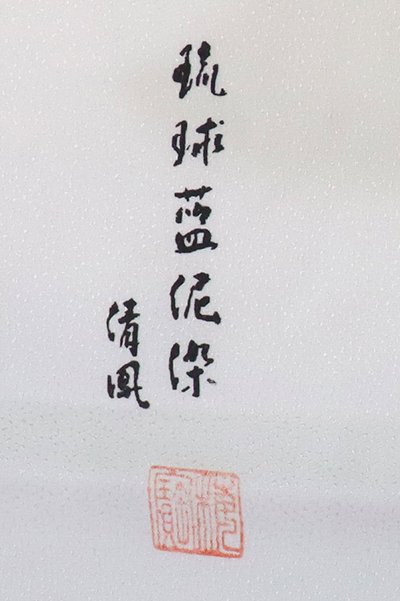 琉球藍泥染
清鳳